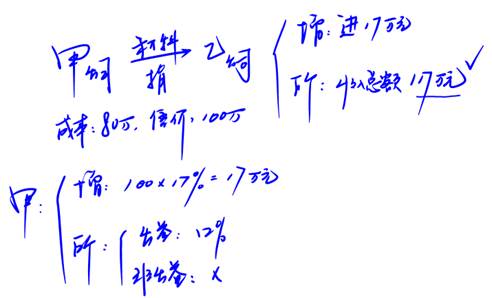 甲公司 材料 捐 乙公司
增:进17万元
所:收入总额117万元✓
成本:80万,售价:100万
甲:
增:100×17%=17万元
所:
公益:12%
非公益:×